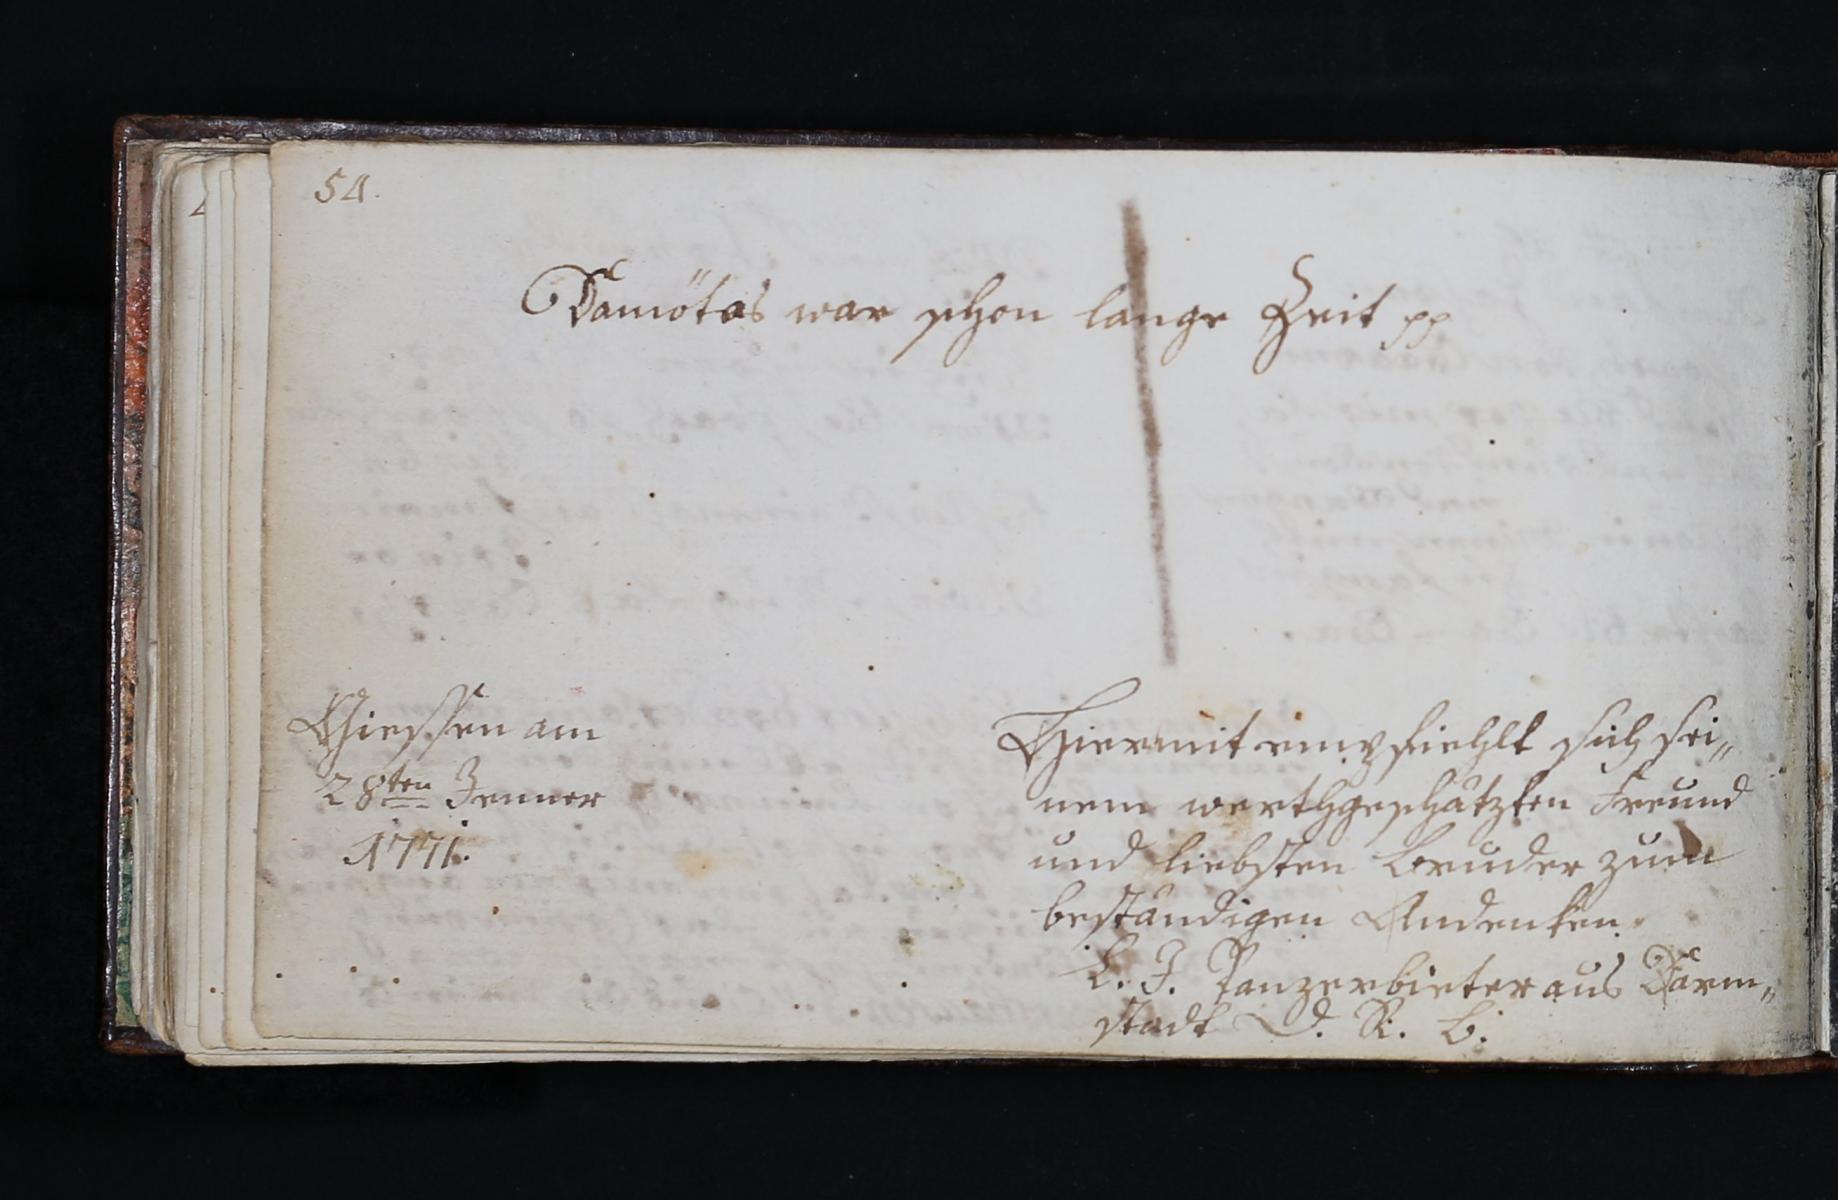 54.
Damötas war schon lange Zeit pp
Giessen am
28ten Jenner
1771.
Hiermit empfiehlt sich sei„
nem werthgeschätzten Freund
und liebsten Bruder zum
beständigen Andenken.
L. J. Panzerbieter aus Darm„
stadt d. R. B.